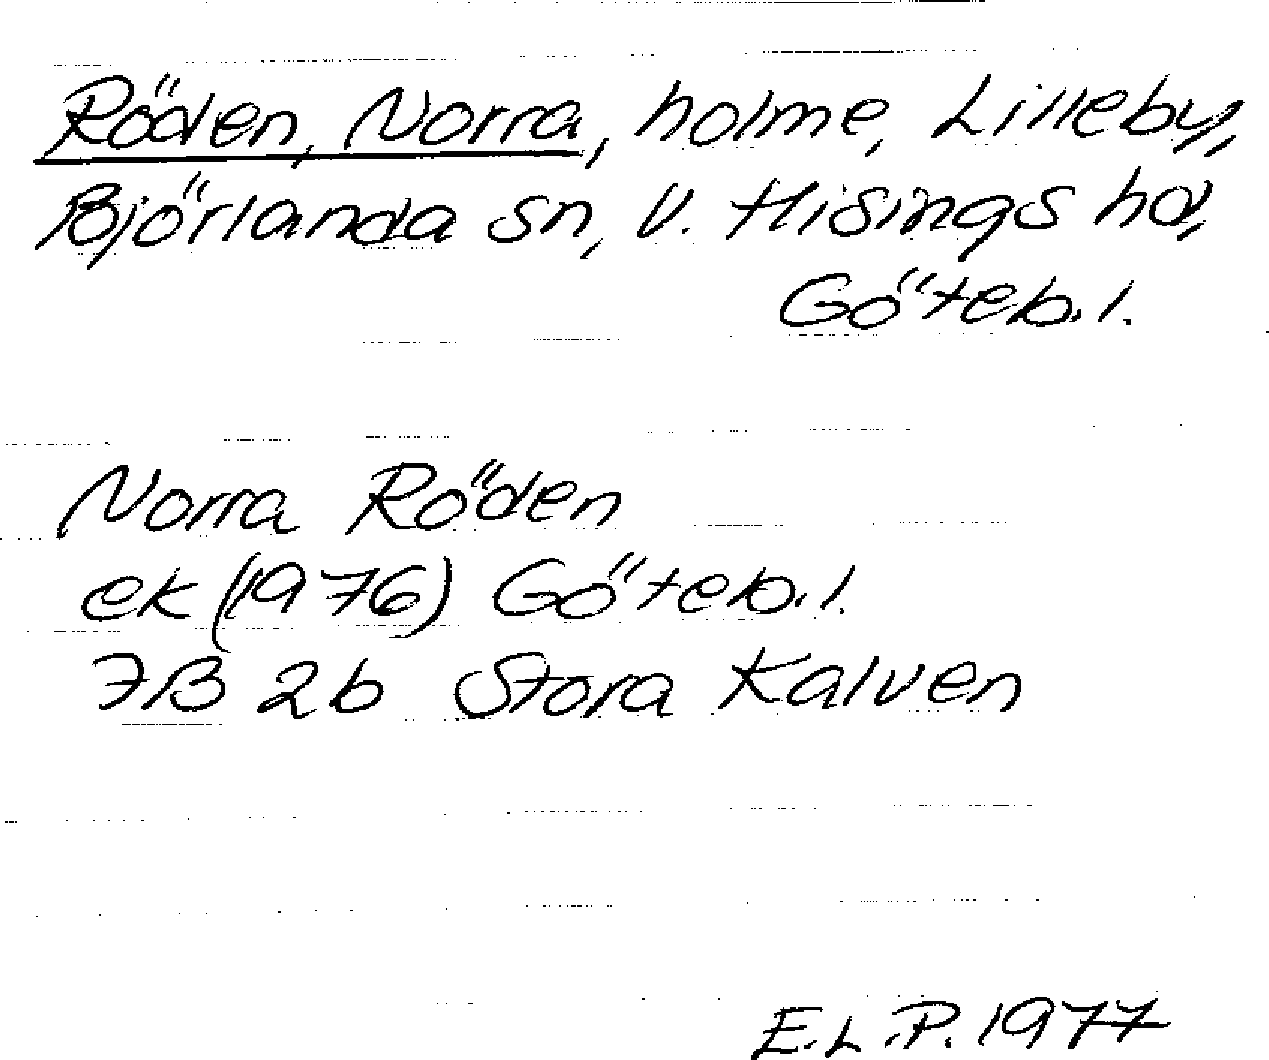 Röden, Norra, holme, Lilleby,
Björlanda sn, V. Hisings hd,
Göteb. l.
Norra Röden
ek (1976) Göteb. l.
7B 2b Stora Kalven
E.L.P. 1977